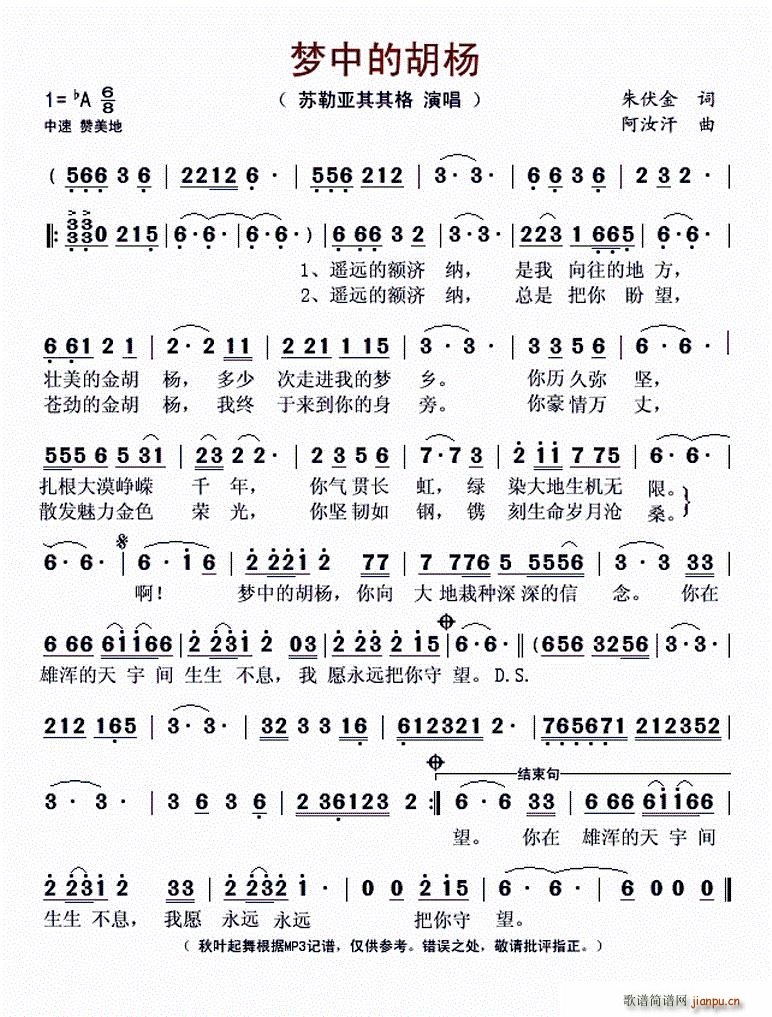 梦中的胡杨
1=♭A 6/8 （ 苏勒亚其其格 演唱 ） 朱伏金 词
中速 赞美地 阿汝汗 曲
（ 566 3 6 | 2212 6· | 556 212 | 3· 3· | 6 63 6 | 2 3 2· |
‖: 33 33 0 215 | 6· 6· | 6· 6· ） | 6 66 3 2 | 3· 3· | 223 1 665 | 6· 6· |
1、遥远的额济 纳， 是我 向往的地 方，
2、遥远的额济 纳， 总是 把你 盼望，
6 61 2 1 | 2· 2 11 | 2 21 1 15 | 3· 3· | 3 35 6 | 6· 6· |
壮美的金胡 杨， 多少 次走进我的梦 乡。 你历久弥 坚，
苍劲的金胡 杨， 我终 于来到你的身 旁。 你豪情万 丈，
555 6 5 31 | 23 2 2· | 2 3 5 6 | 7· 7 3 | 2 11 7 75 | 6· 6· |
扎根大漠峥嵘 千 年， 你气贯长 虹，绿 染大地生机无 限。
散发魅力金色 荣 光， 你坚韧如 钢，镌 刻生命岁月沧 桑。
6· 6· | 6· i 6 | 2 22i 2 77 | 7 776 5 5556 | 3· 3 33 |
啊！ 梦中的胡杨，你向 大 地栽种深 深的信 念。 你在
6 66 6ii66 | 2 23i 2 03 | 2 23 2 i5 | 6· 6· ‖ （656 3256 | 3· 3· |
雄浑的天 宇 间 生生 不息，我 愿永远把你守 望。D.S.
212 165 | 3· 3· | 32 3 3 16 | 612321 2· | 765671 212352 |
结束句
3· 3· | 3 6 3 6 | 2 36123 2 :‖ 6· 6 33 | 6 66 6ii66 |
望。 你在 雄浑的天 宇 间
2 23i 2 33 | 2 23i i· | 0 0 2 i5 | 6· 6· | 6 0 0 ‖
生生 不息， 我愿 永远 永远 把你守 望。
（ 秋叶起舞根据MP3记谱，仅供参考。错误之处，敬请批评指正。）
歌谱简谱网
jianpu.cn